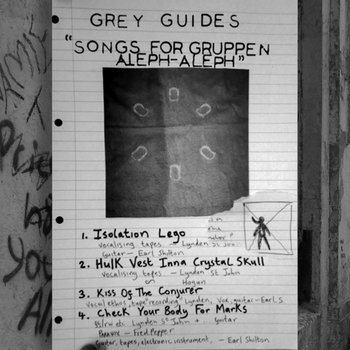 GREY GUIDES
"SONGS FOR GRUPPEN
ALEPH-ALEPH"
1. Isolation Lego
Vocalising tapes - Lynden St John
Guitar - Earl Shilton
2. Hulk Vest Inna Crystal Skull
Vocalising tapes - Lynden St John
Hogan
3. Kiss Of The Conjurer
Vocal ethos, tape recording Lynden, Vox, guitar - Earl S
4. Check Your Body For Marks
Lynden St John + Guitar
Fred Pepper
Guitar, tapes, electronic instrument, - Earl Shilton